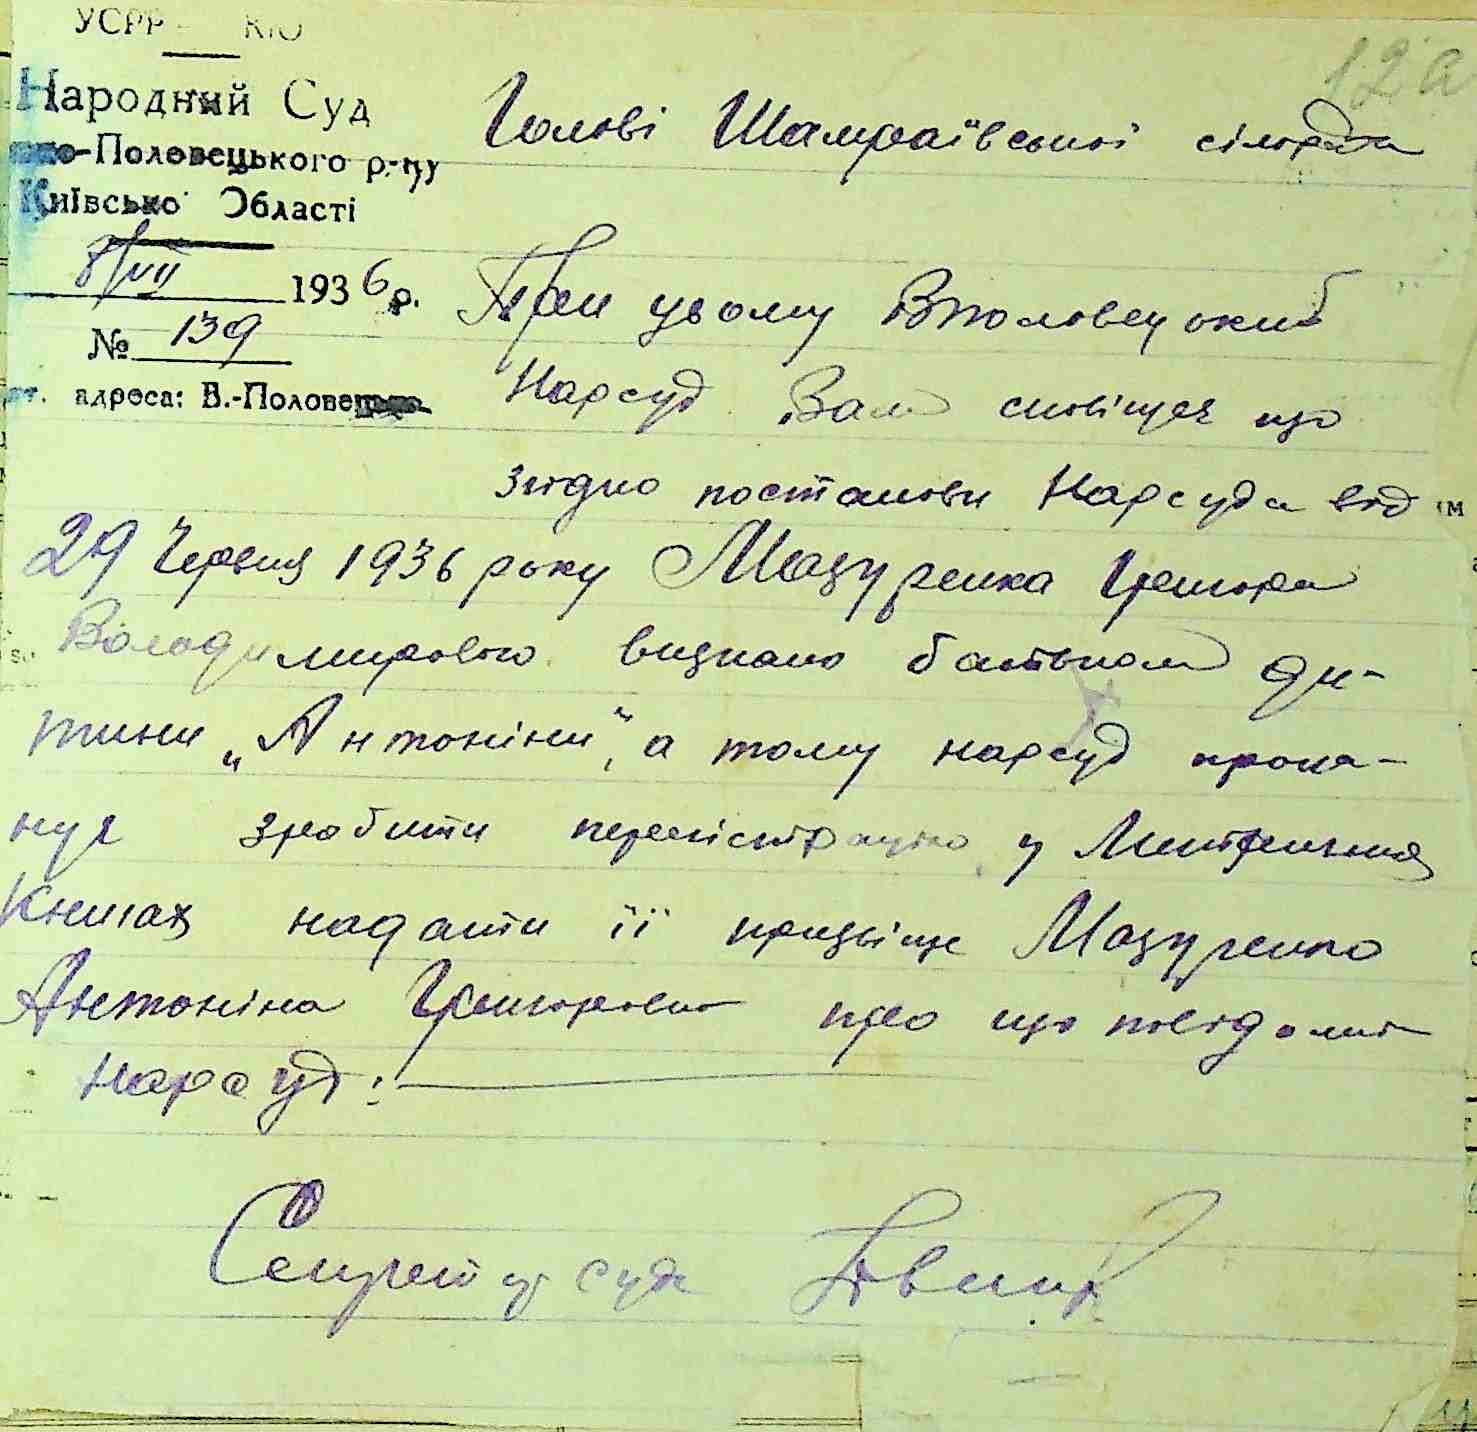 УСРР КЮ
12а
Народний Суд
-Половецького р-ну
Київсько Області
8/VII 1936 р.
№ 139
адреса: В.-Половец
Голові Шамраївської сільради
При цьому Вполовецький
Нарсуд Вам сповіщає що
згідно постанови Нарсуда від
29 Червня 1936 року Мазуренка Григора
Володимировою визнано батьком ди-
тини „Антоніни", а тому нарсуд пропа-
нує зробити перегістрацію у Метричних
Книгах надати її прізвіще Мазуренко
Антоніна Григоровна про що повідомит
нарсуд:
Секретар суда